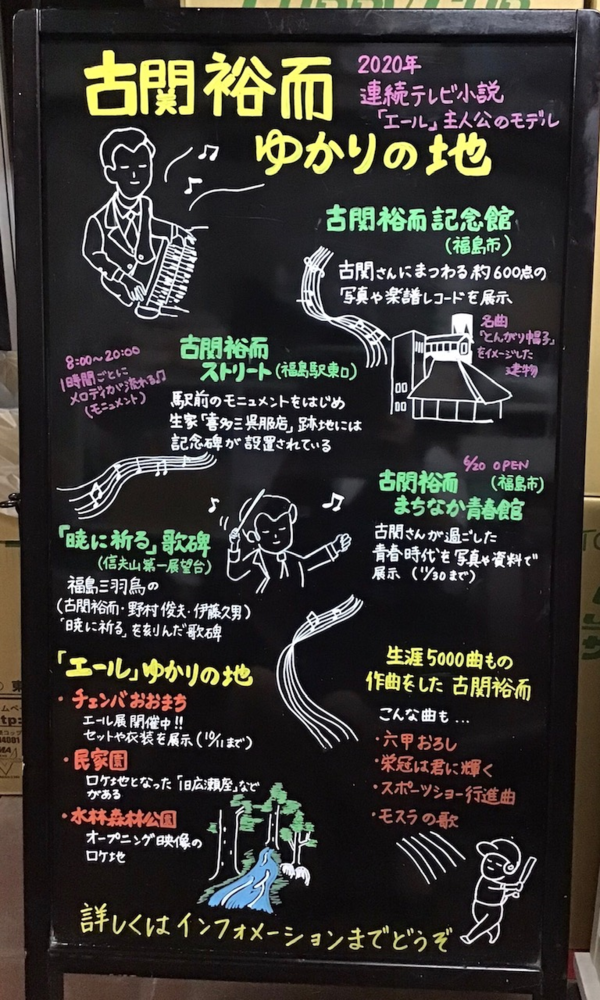 古関裕而
2020年
連続テレビ小説
「エール」主人公のモデル
ゆかりの地
古関裕而記念館
(福島市)
古関さんにまつわる約600点の
写真や楽譜レコードを展示
名曲
「とんがり帽子」
をイメージした
建物
8:00〜20:00
1時間ごとに
メロディが流れる♫
(モニュメント)
古関裕而
ストリート(福島駅東口)
駅前のモニュメントをはじめ
生家「喜多三呉服店」跡地には
記念碑が設置されている
6/20 OPEN
古関裕而 (福島市)
まちなか青春館
古関さんが過ごした
青春時代を写真や資料で
展示 (11/30まで)
「暁に祈る」歌碑
(信夫山第一展望台)
福島三羽烏の
(古関裕而・野村俊夫・伊藤久男)
「暁に祈る」を刻んだ歌碑
「エール」ゆかりの地
・チェンバおおまち
エール展開催中!!
セットや衣装を展示(10/11まで)
・民家園
ロケ地となった「旧広瀬座」など
がある
・水林森林公園
オープニング映像の
ロケ地
生涯5000曲もの
作曲をした 古関裕而
こんな曲も…
・六甲おろし
・栄冠は君に輝く
・スポーツショー行進曲
・モスラの歌
詳しくはインフォメーションまでどうぞ